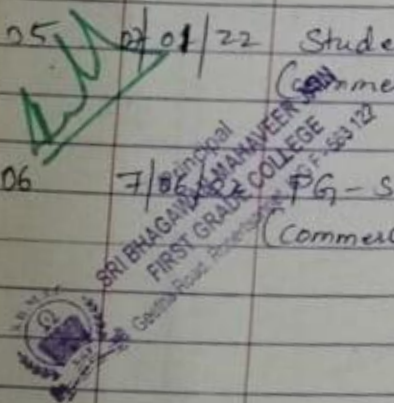 05 07/01/22 Stude
(comme
06 7/06/22 PG - S
(commer
Principal
SRI BHAGAWAN MAHAVEER JAIN
FIRST GRADE COLLEGE
Geetha Road, K.G.F - 563 122